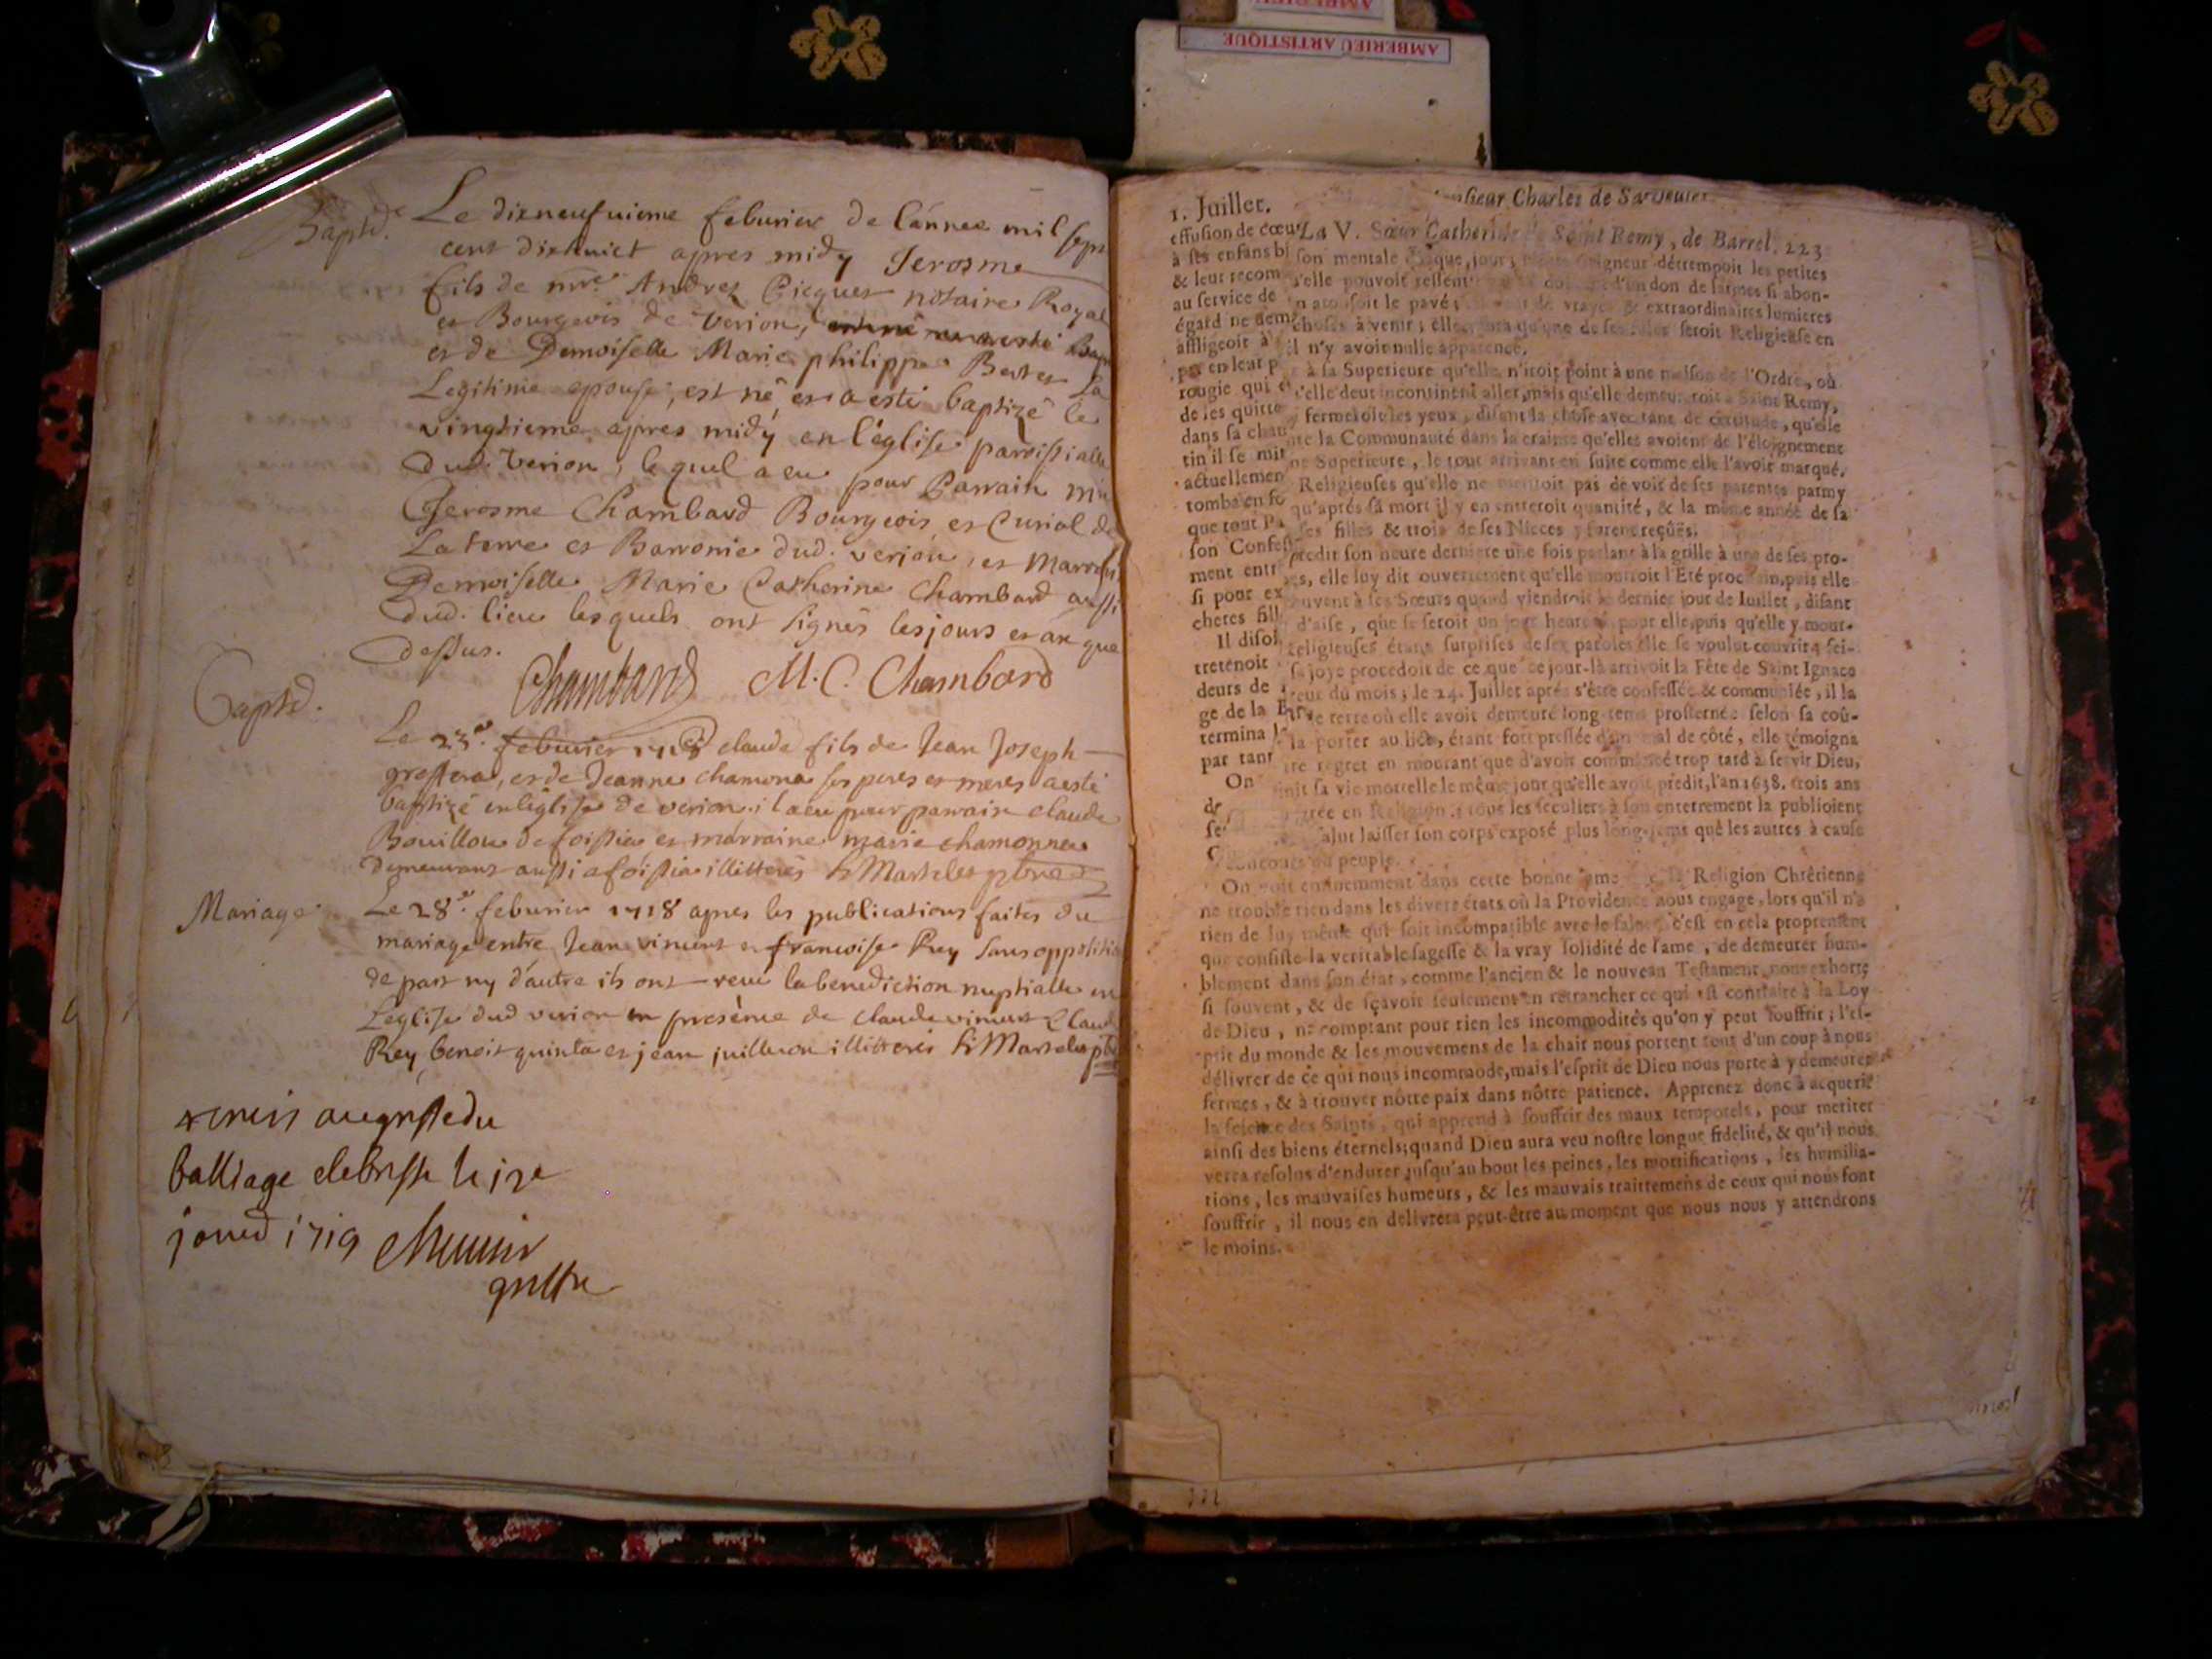 AMBERIEU ARTISTIQUE
Bapt.
Le dixneufuieme feburier de l'annee mil sept
cent dixhuict apres midy Jerosme
fils de mre. Andrez Picquet notaire Royal
et Bourgeois de Verion,
et de Demoiselle Marie philippe Bertet La
Legitime epouse, est né et a esté baptizé le
vingtieme apres midy en l'église paroissialle
dud. Verion, lequel a eu pour Parrain
Jerosme Chambard Bourgeois et Curial de
La terre et Baronnie dud. verjon, et
Demoiselle Marie Catherine Chambard aussi
dud. lieu lesquels ont signés les jours et an que
dessus.
Chambard M. C. Chambard
Baptd.
Le 23e. feburier 1718 claude fils de Jean Joseph
et de Jeanne chamona ses peres et meres a esté
baptizé en léglise de verion. il a eu pour parrain claude
Bouillou de foissia et marraine marie chamonna
demeurans aussi a foissia illitterés
Mariage
Le 28e. feburier 1718 apres les publications faites du
mariage entre Jean vincent et francoise Rey sans oppositio
de part ny d'autre ils ont receu la benediction nuptialle en
L'eglise dud verion en presence de claude vincent Claud
Rey, benoit quinta et jean juilleron illitterés
remis au greffe du
balliage de bresse le 12e
1719
greffier
1. Juillet.
Charles de
effusion de cœur
à ses enfans
& leur recom
au service de
égard ne
affligeoit à
par en leur
rougie qui
de les quitte
dans sa
tin il se mit
actuellemen
tomba en
que tout
son Confess
ment entr
si pour ex
cheres fill
Il disoi
tretenoit
deurs de
ge de la
termina
par tant
On
La V. Sœur Catherine de Saint Remy, de Barrel. 223
son mentale chaque jour; Seigneur détrempoit les petites
d'un don de larmes si abon-
le pavé; & extraordinaires lumieres
choses à venir; elle qu'une de ses filles seroit Religieuse en
il n'y avoit nulle apparence.
à sa Superieure qu'elle n'iroit point à une maison de l'Ordre, où
s'elle deut incontinent aller, mais qu'elle demeureroit à Saint Remy,
fermeroit les yeux, disant la chose avec tant de certitude, qu'elle
la Communauté dans la crainte qu'elles avoient de l'éloignement
Superieure, le tout arrivant en suite comme elle l'avoit marqué.
Religieuses qu'elle ne meritoit pas de voir de ses parentes parmy
qu'aprés sa mort il y en entreroit quantité, & la même année de sa
ses filles & trois de ses Nieces y furent reçûës.
predit son heure derniere une fois parlant à la grille à une de ses pro-
elle luy dit ouvertement qu'elle mourroit l'Eté prochain, puis elle
souvent à ses Sœurs quand viendroit le dernier jour de Iuillet, disant
d'aise, que se seroit un jour heureux pour elle, puis qu'elle y mour-
religieuses étans surprises de ses paroles elle se voulut couvrir
sa joye procedoit de ce que ce jour-là arrivoit la Fête de Saint Ignace
du mois; le 24. Juillet aprés s'être confessée & communiée, il la
terre où elle avoit demeuré long-tems prosternée selon sa coû-
la porter au lict, étant fort pressée d'un mal de côté, elle témoigna
regret en mourant que d'avoir commencé trop tard à servir Dieu,
finit sa vie mortelle le même jour qu'elle avoit predit, l'an 1638. trois ans
en Religion; tous les seculiers à son enterrement la publioient
laisser son corps exposé plus long-tems que les autres à cause
du peuple.
On voit eminemment dans cette bonne ame que la Religion Chrêtienne
ne trouble rien dans les divers états où la Providence nous engage, lors qu'il n'a
rien de luy même qui soit incompatible avec le salut; c'est en cela proprement
que consiste la veritable sagesse & la vray solidité de l'ame, de demeurer hum-
blement dans son état, comme l'ancien & le nouveau Testament nous exhorte
si souvent, & de sçavoir seulement en retrancher ce qui est contraire à la Loy
de Dieu, ne comptant pour rien les incommodités qu'on y peut souffrir; l'es-
prit du monde & les mouvemens de la chair nous portent tout d'un coup à nous
délivrer de ce qui nous incommode, mais l'esprit de Dieu nous porte à y demeurer
fermes, & à trouver nôtre paix dans nôtre patience. Apprenez donc à acquerir
la science des Saints, qui apprend à souffrir des maux temporels, pour meriter
ainsi des biens éternels; quand Dieu aura veu nostre longue fidelité, & qu'il nous
verra resolus d'endurer jusqu'au bout les peines, les mortifications, les humilia-
tions, les mauvaises humeurs, & les mauvais traittemens de ceux qui nous font
souffrir, il nous en delivrera peut-être au moment que nous nous y attendrons
le moins.